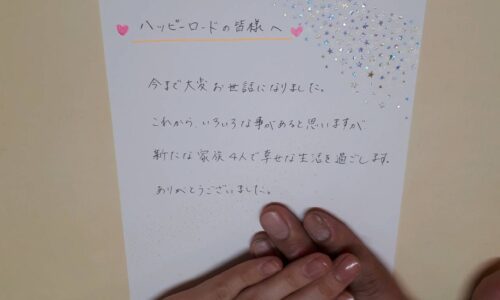 ハッピーロードの皆様へ
今まで大変お世話になりました。
これから、いろいろな事があると思いますが
新たな家族4人で幸せな生活を過ごします。
ありがとうございました。